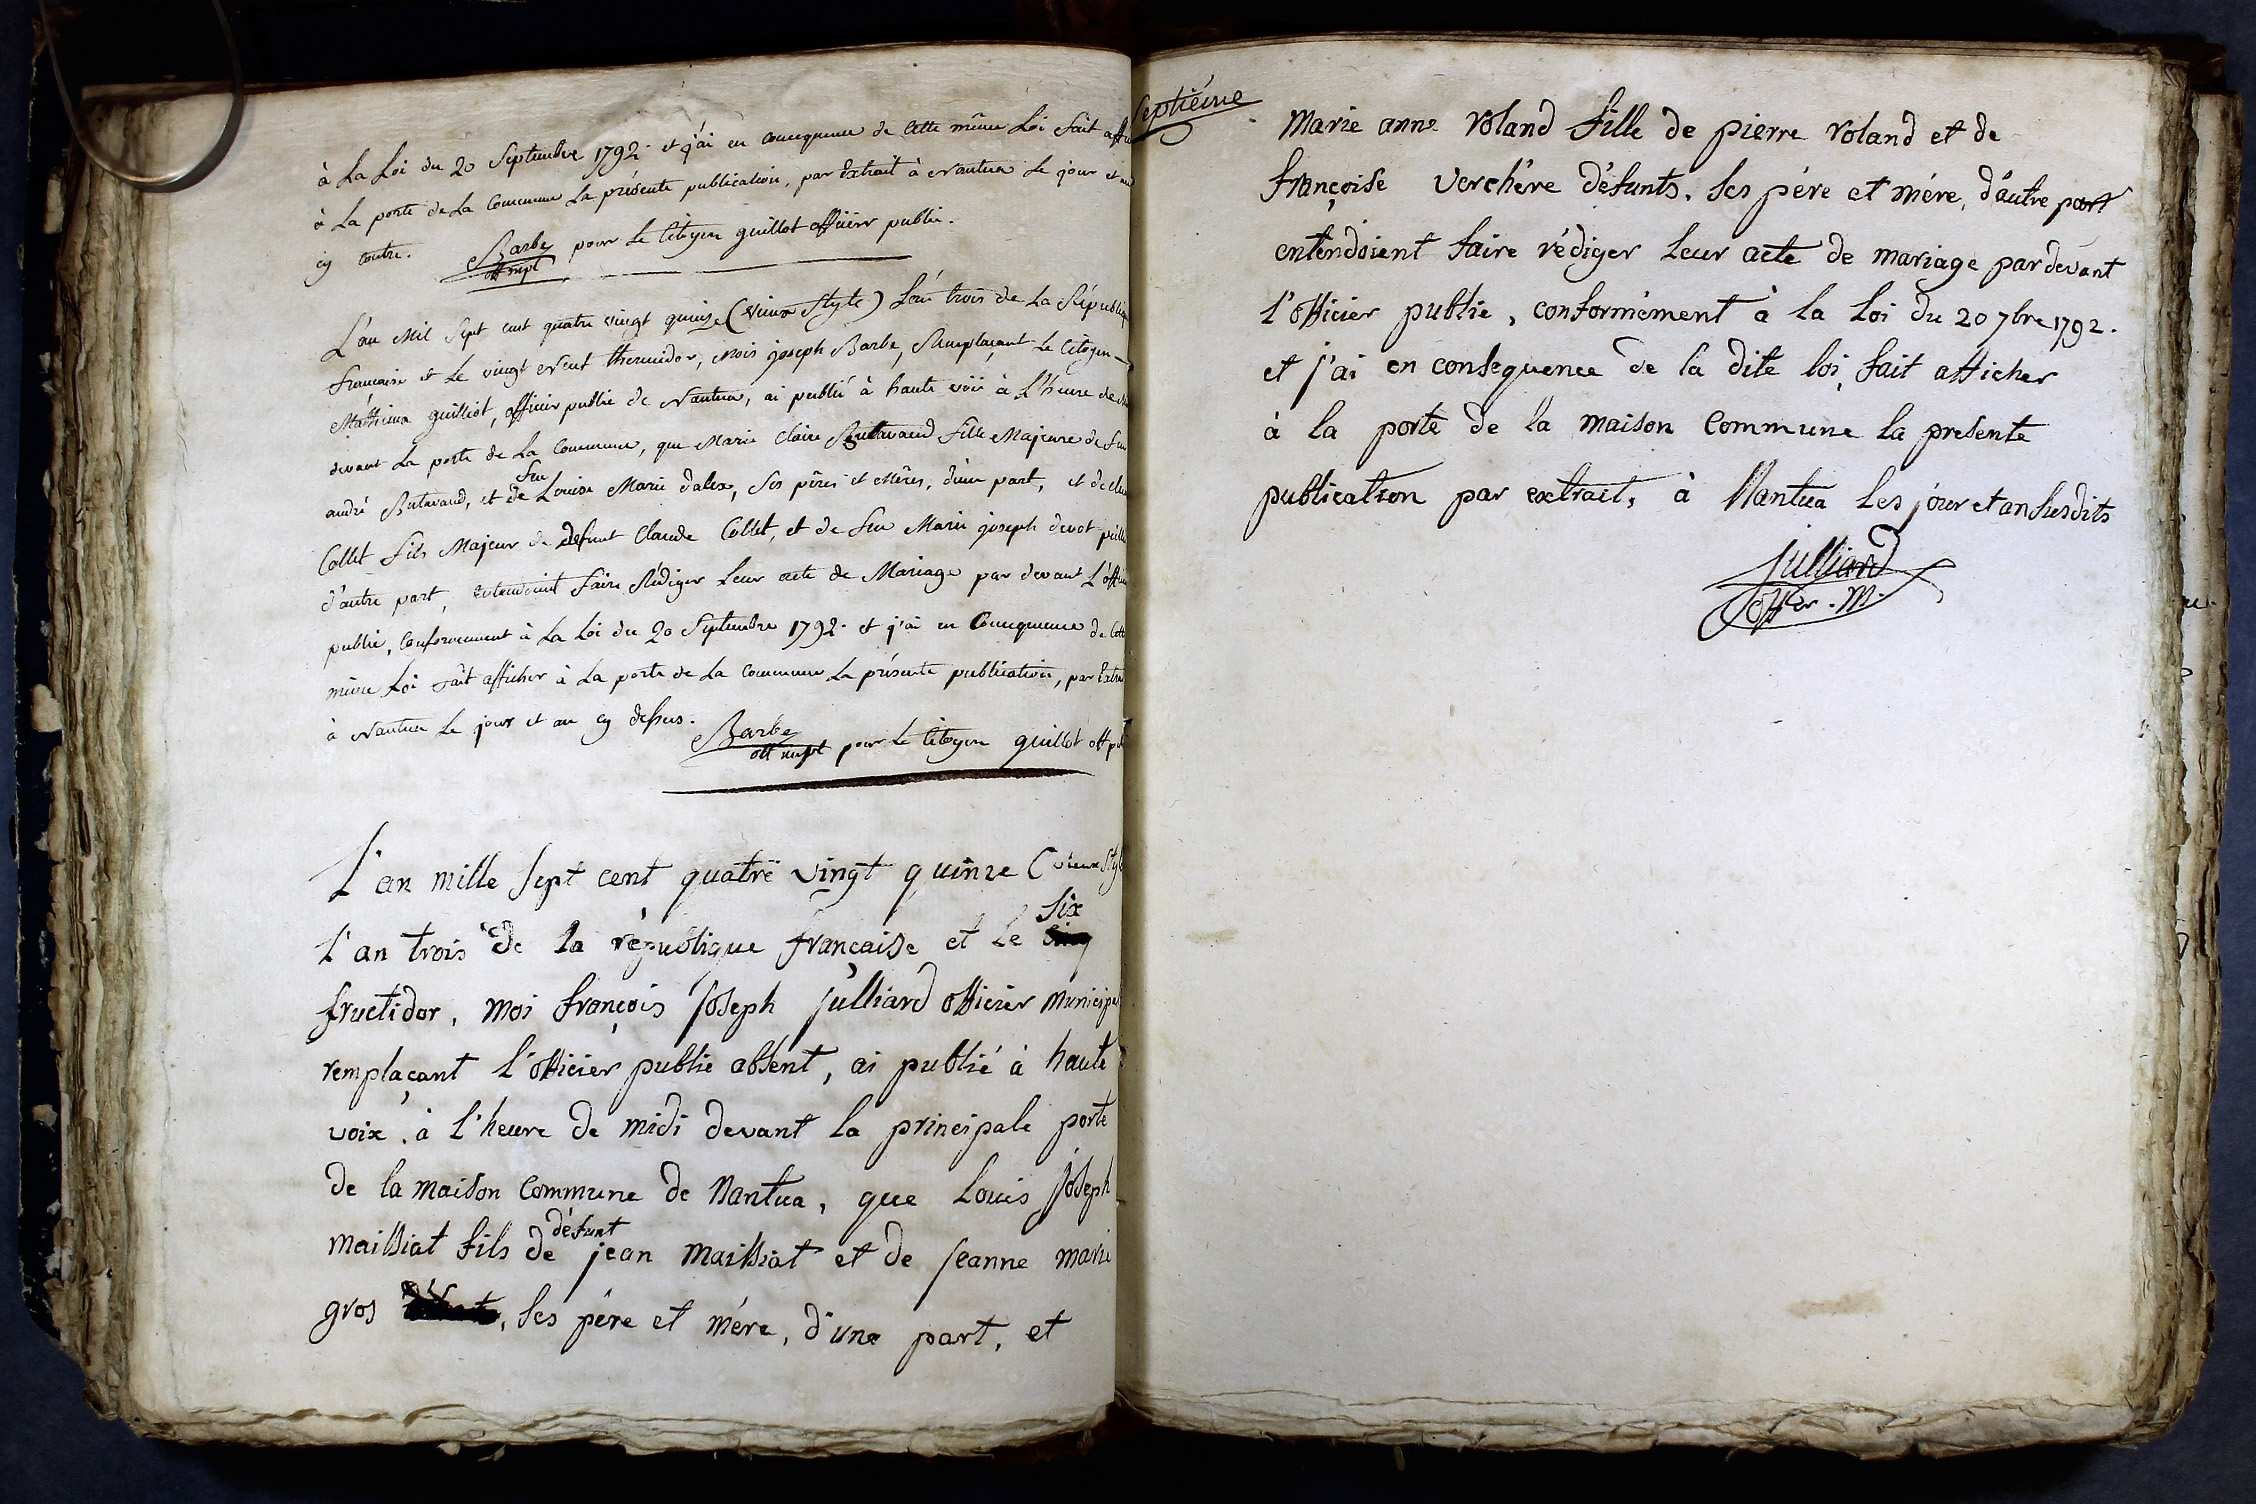 à La Loi du 20 Septembre 1792. et j'ai en consequence de Cette même Loi fait
à La porte de La Commune La présente publication, par Extrait à Nantua Le jour et an
cy contre. Barbe pour Le Citoyen guilliot officier public.
off mpl
L'an Mil Sept cent quatre vingt quinze (vieux Style) L'an trois de La République
française et Le vingt Neuf thermidor, Mois joseph Barbe, Remplaçant Le Citoyen
Mathieux guilliot, officier public de Nantua, ai publié à haute voix à L'heure de
devant La porte de La Commune, que Marie Claire Butavand fille Majeure de feu
feu
andré Butavand, et de Louise Marie dalex, Ses pères et Mères, d'une part, et de
Collet fils Majeur de defunt Claude Collet, et de feu Marie joseph
d'autre part, Entendoient faire Rédiger Leur acte de Mariage par devant L'
public, Conformement à La Loi du 20 Septembre 1792. et j'ai en Consequence de
même Loi fait afficher à La porte de La Commune La présente publication, par
à Nantua Le jour et an cy dessus.
Barbe
off mpl pour Le Citoyen guilliot off
L'an mille sept cent quatre vingt quinze (vieux Style
six
L'an trois de la république française et le cinq
fructidor, moi françois Joseph Julliard officier municipal
remplaçant l'officier public absent, ai publié à haute
voix, à l'heure de midi devant la principale porte
de la maison Commune de Nantua, que Louis Joseph
défunt
maissiat fils de jean maissiat et de Jeanne marie
gros, ses pére et mére, d'une part, et
septiéme
Marie anne roland fille de pierre roland et de
françoise verchére défunts, ses pére et mére, d'autre part
entendoient faire rédiger leur acte de mariage par devant
l'officier public, conformément à la Loi du 20 7bre 1792.
et j'ai en consequence de la dite loi, fait afficher
à la porte de la maison Commune la presente
publication par extrait, à Nantua les jour et an susdits
Julliard
offer. m.